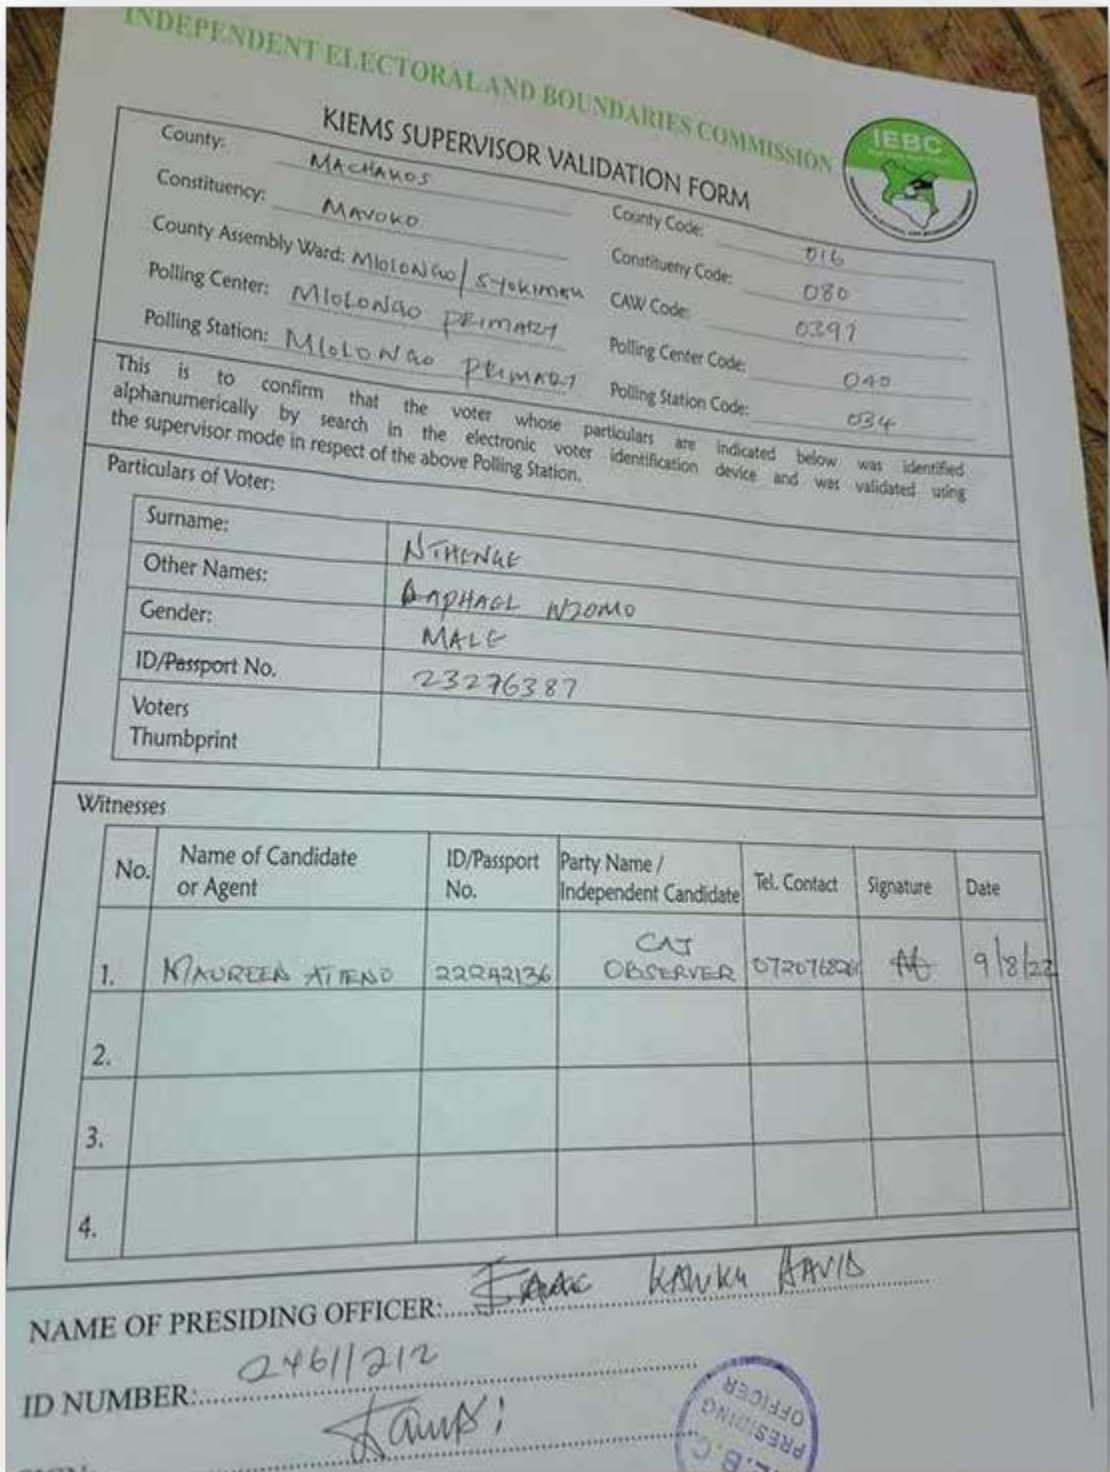 INDEPENDENT ELECTORAL AND BOUNDARIES COMMISSION
IEBC
KIEMS SUPERVISOR VALIDATION FORM
County: MACHAKOS
County Code: 016
Constituency: MAVOKO
Constitueny Code: 080
County Assembly Ward: MlOLONGO/SYOKIMAU
CAW Code: 0397
Polling Center: MlOLONGO PRIMARY
Polling Center Code: 040
Polling Station: MlOLONGO PRIMARY
Polling Station Code: 034
This is to confirm that the voter whose particulars are indicated below was identified
alphanumerically by search in the electronic voter identification device and was validated using
the supervisor mode in respect of the above Polling Station.
Particulars of Voter:
Surname: NTHENGE
Other Names: RAPHAEL NZOMO
Gender: MALE
ID/Passport No. 23276387
Voters
Thumbprint
Witnesses
No. Name of Candidate or Agent ID/Passport No. Party Name / Independent Candidate Tel. Contact Signature Date
1. MAUREEN ATIENO 22242136 CAJ OBSERVER 9/8/22
2.
3.
4.
NAME OF PRESIDING OFFICER: DAVID
ID NUMBER: 24611212
PRESIDING
OFFICER